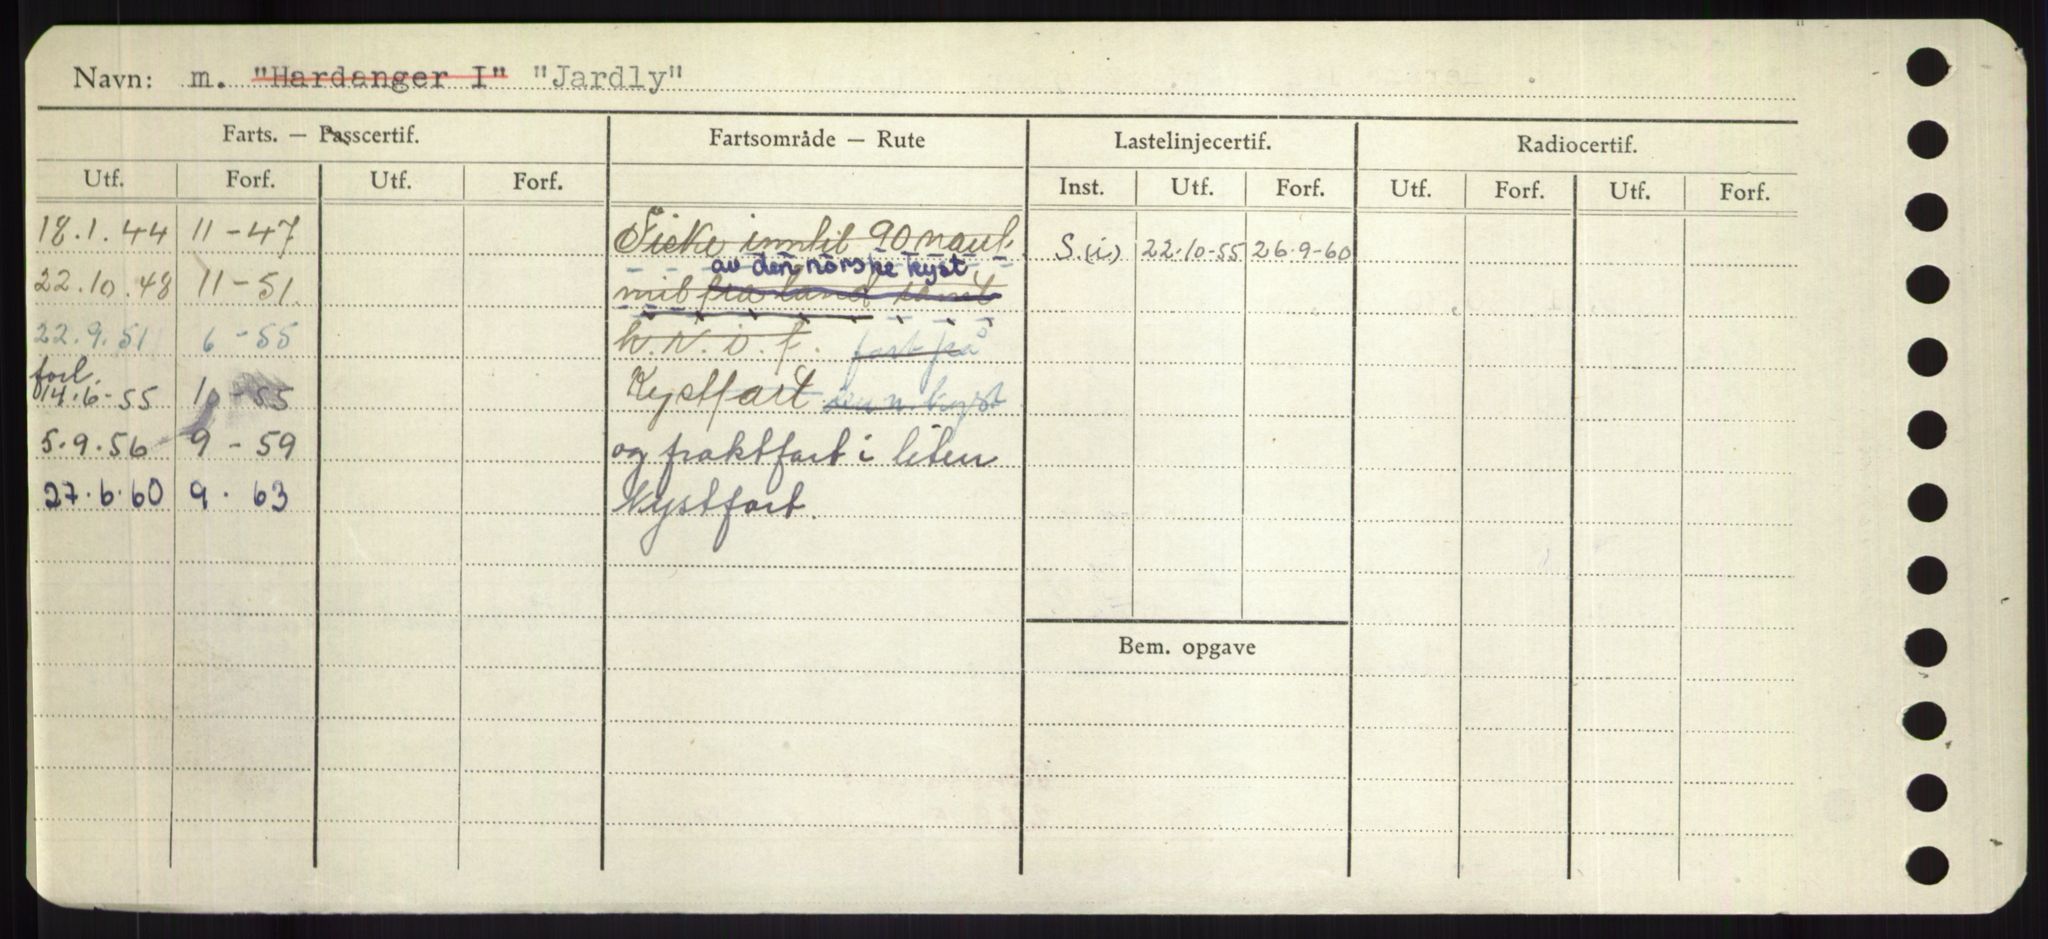 Navn: m. "Hardanger I" "Jardly"
Farts. — Passcertif. Fartsområde — Rute Lastelinjecertif. Radiocertif.
Utf. Forf. Utf. Forf. Inst. Utf. Forf. Utf. Forf. Utf. Forf.
18.1.44 11-47 Fiske inntil 90 naut. S.(i) 22.10-55 26.9-60
av den norske kyst
22.10.48 11-51 mil fra land samt
22.9.51 6-55 h.N.i.f. fart på
forl.
14.6-55 10-55 Kystfart den n. kyst
5.9.56 9-59 og fraktfart i liten
27.6.60 9.63 Kystfart.
Bem. opgave